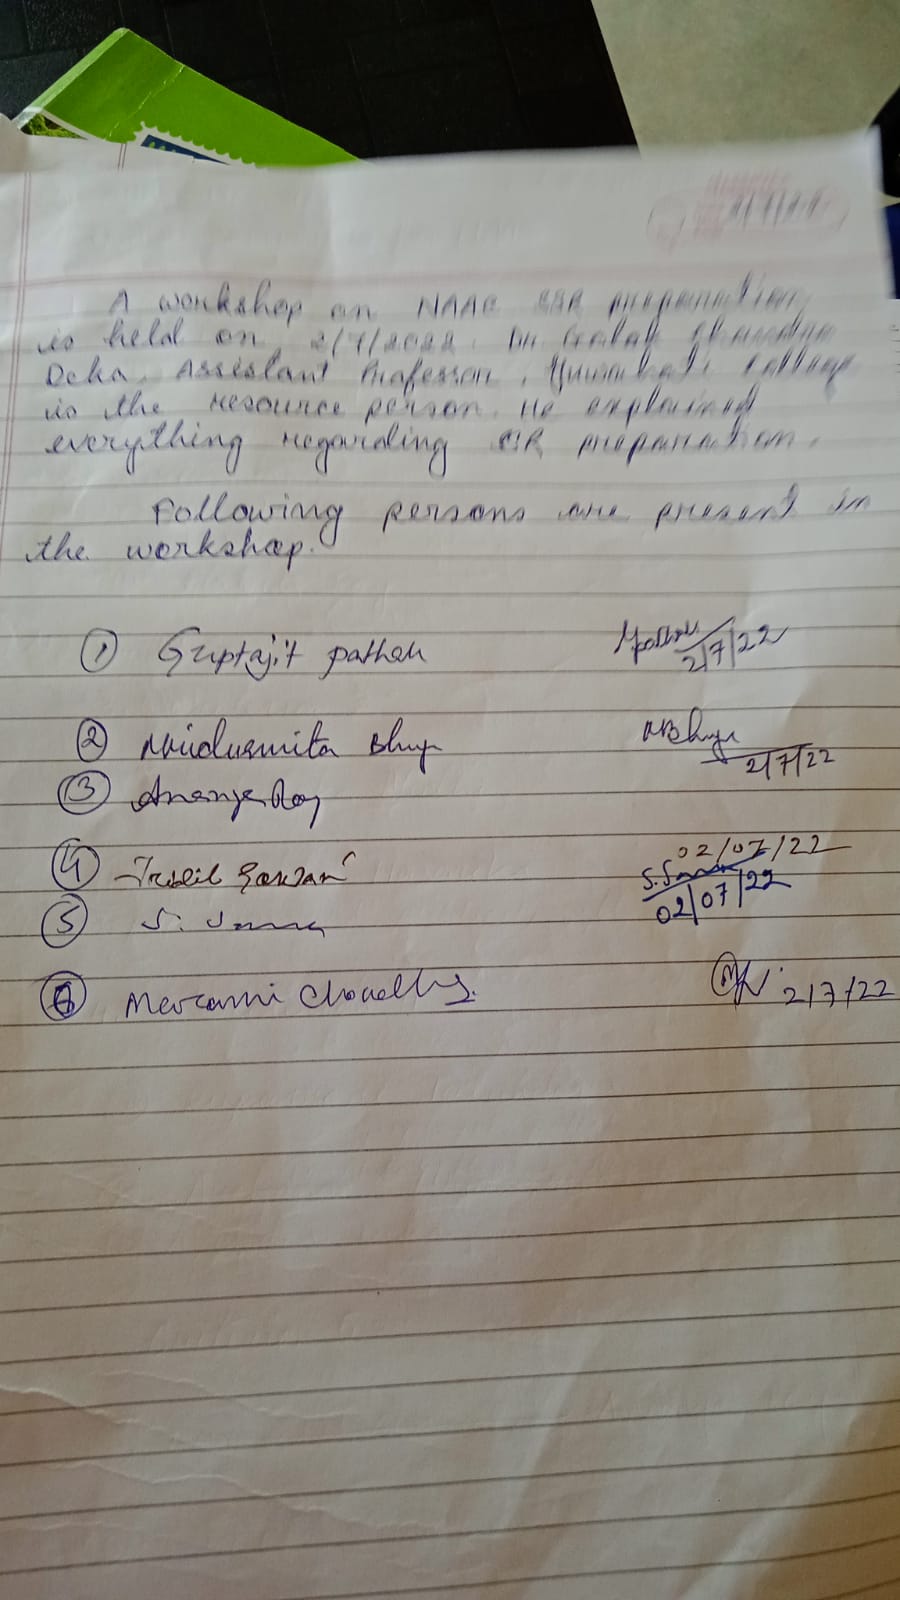 2/7/22
A workshop on NAAC SSR preparation
is held on 2/7/2022. Dr. Chandra
Deka, Assistant Professor, College
is the resource person. He explained
everything regarding SSR preparation.
Following persons are present in
the workshop.
① Guptajit Pathak 2/7/22
② Bhuya NBhuya 2/7/22
③ Ananya Roy
④ 02/07/22
⑤ S. Sarma S. Sarma 02/07/22
⑥ Choudhury. 2/7/22